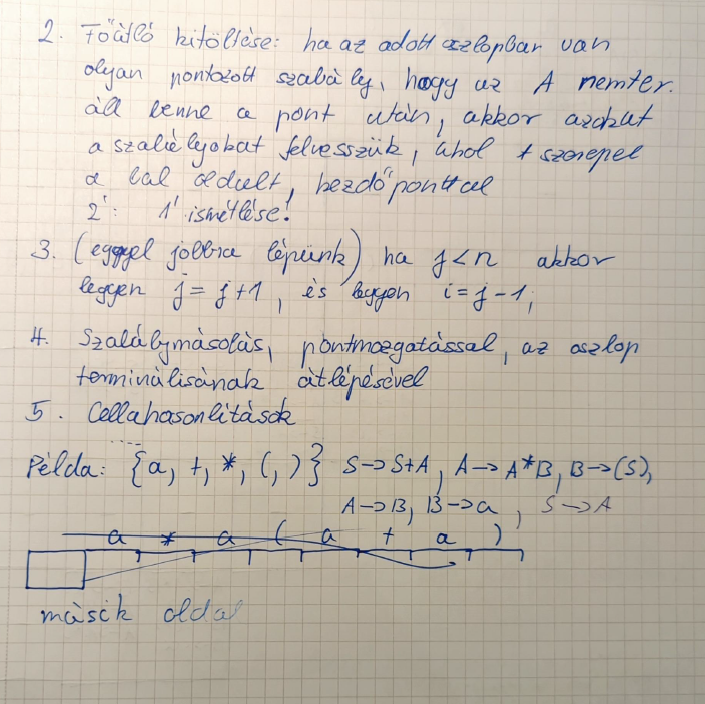 2. Főátló kitöltése: ha az adott oszlopban van
olyan pontozott szabály, hogy az A nemter.
áll benne a pont után, akkor azokat
a szabályokat felvesszük, ahol szerepel
a bal oldalt, kezdőponttal
2': 1' ismétlése!
3. (eggyel jobbra lépünk) ha j<n akkor
legyen j = j+1, és legyen i=j-1,
4. Szabálymásolás, pontmozgatással, az oszlop
terminálisának átlépésével
5. Cellahasonlítások
Példa: {a, +, *, (, )} S->S+A, A->A*B, B->(S),
A->B, B->a, S->A
a * a ( a + a )
másik oldal